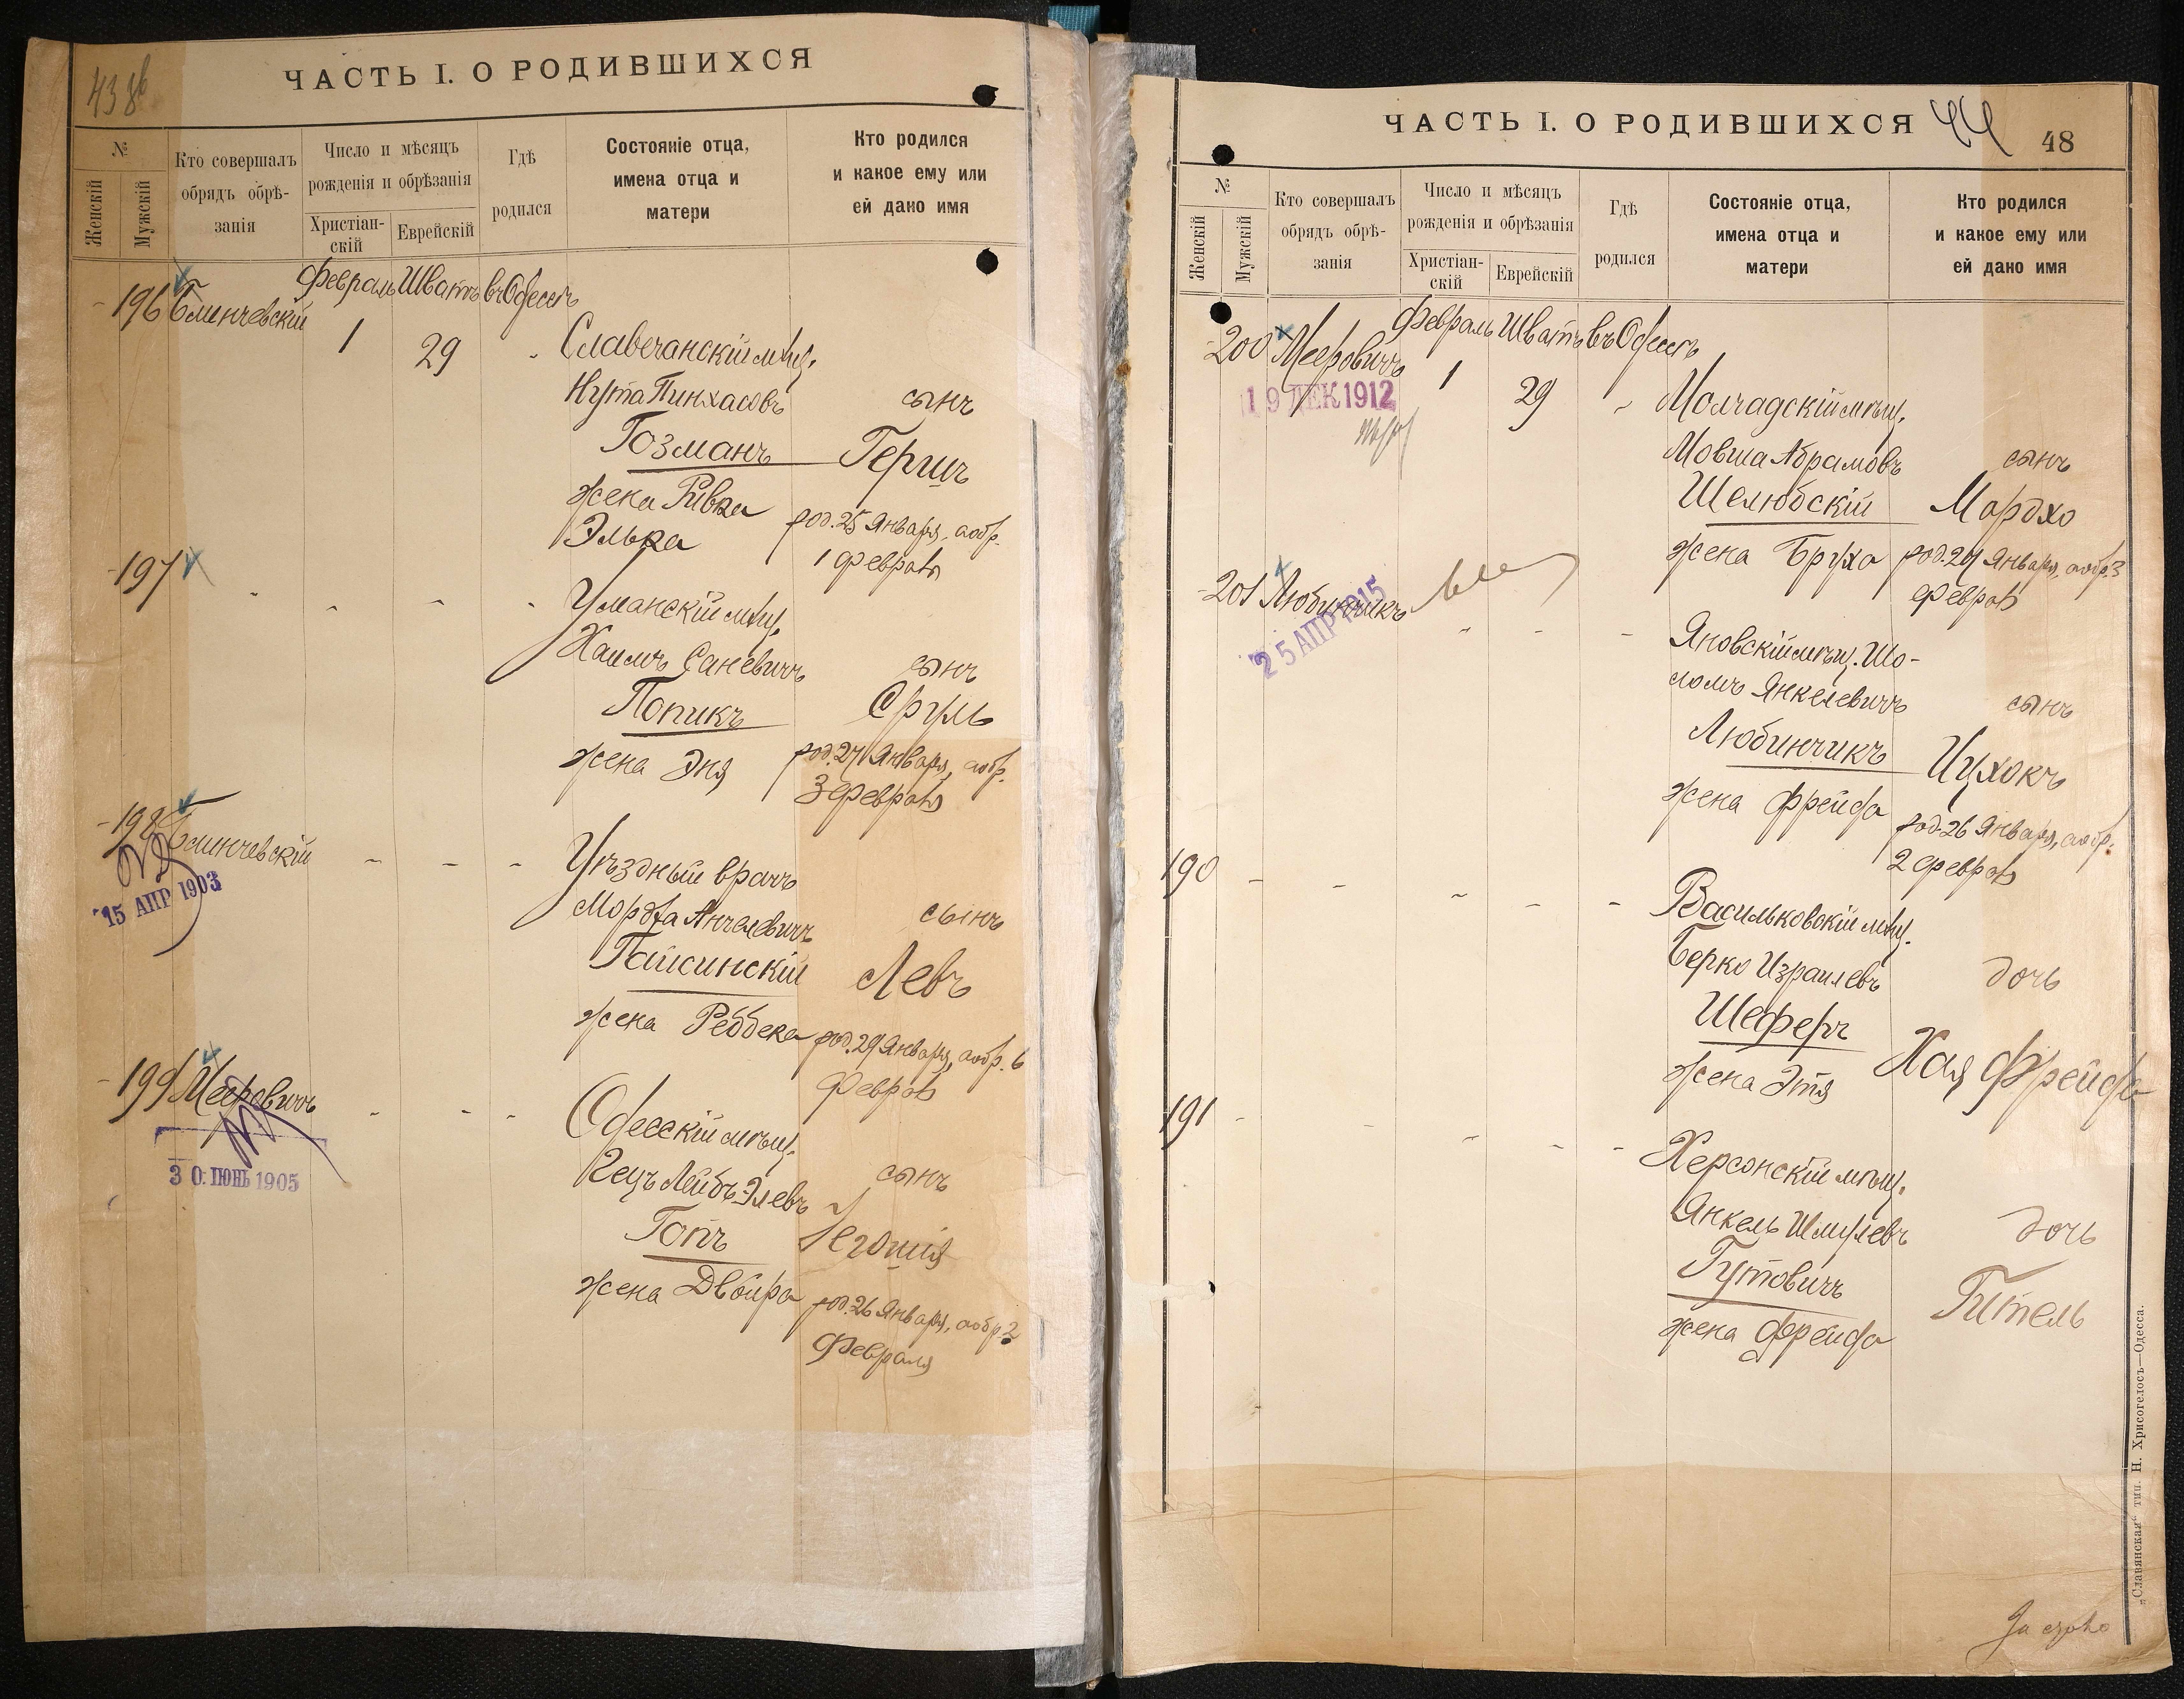 43 об
ЧАСТЬ I. О РОДИВШИХСЯ
№
Женскій
Мужскій
Кто совершалъ
обрядъ обрѣ-
занія
Число и мѣсяцъ
рожденія и обрѣзанія
Христіан-
скій
Еврейскій
Гдѣ
родился
Состояніе отца,
имена отца и
матери
Кто родился
и какое ему или
ей дано имя
Февраль Шватъ въ Одессѣ
196 Блинчевскій
1 29 Славечанскій мѣщ.
Нута Пинхасовъ сынъ
Гозманъ Гершъ
жена Ривка род. 25 Января, а обр.
Элька 1 февраля
197
Уманскій мѣщ.
Хаимъ Саневичъ сынъ
Попикъ Сруль
жена Эня род. 27 Января, а обр.
3 февраля
198 Блинчевскій
15 АПР 1903
Уѣздный врачъ
Мордха Анчелевичъ сынъ
Гайсинскій Левъ
жена Реббека род. 29 Января, а обр. 6
февраля
199 Мееровичъ
30 ІЮНЬ 1905
Одесскій мѣщ.
Гецъ Лейбъ Элевъ сынъ
Готъ Іегошія
жена Двойра род. 26 Января, а обр. 2
Февраля
ЧАСТЬ I. О РОДИВШИХСЯ
44
48
№
Женскій
Мужскій
Кто совершалъ
обрядъ обрѣ-
занія
Число и мѣсяцъ
рожденія и обрѣзанія
Христіан-
скій
Еврейскій
Гдѣ
родился
Состояніе отца,
имена отца и
матери
Кто родился
и какое ему или
ей дано имя
Февраль Шватъ въ Одессѣ
200 Мееровичъ
19 ДЕК 1912
1 29 Молчадскій мѣщ.
Мовша Абрамовъ сынъ
Шелюбскій Мордхо
жена Бруха род. 27 Января, а обр. 3
февраля
201 Любинчикъ
25 АПР 1915
Яновскій мѣщ. Шо-
ломъ Янкелевичъ сынъ
Любинчикъ Ицхокъ
жена Фрейда род. 26 Января, а обр.
2 февраля
190
Васильковскій мѣщ.
Берко Израилевъ дочь
Шеферъ Хая Фрейда
жена Этя
191
Херсонскій мѣщ.
Янкель Шмулевъ дочь
Гутовичъ Гитель
жена Фрейда
„Славянская“ тип. Н. Хрисогелосъ—Одесса.